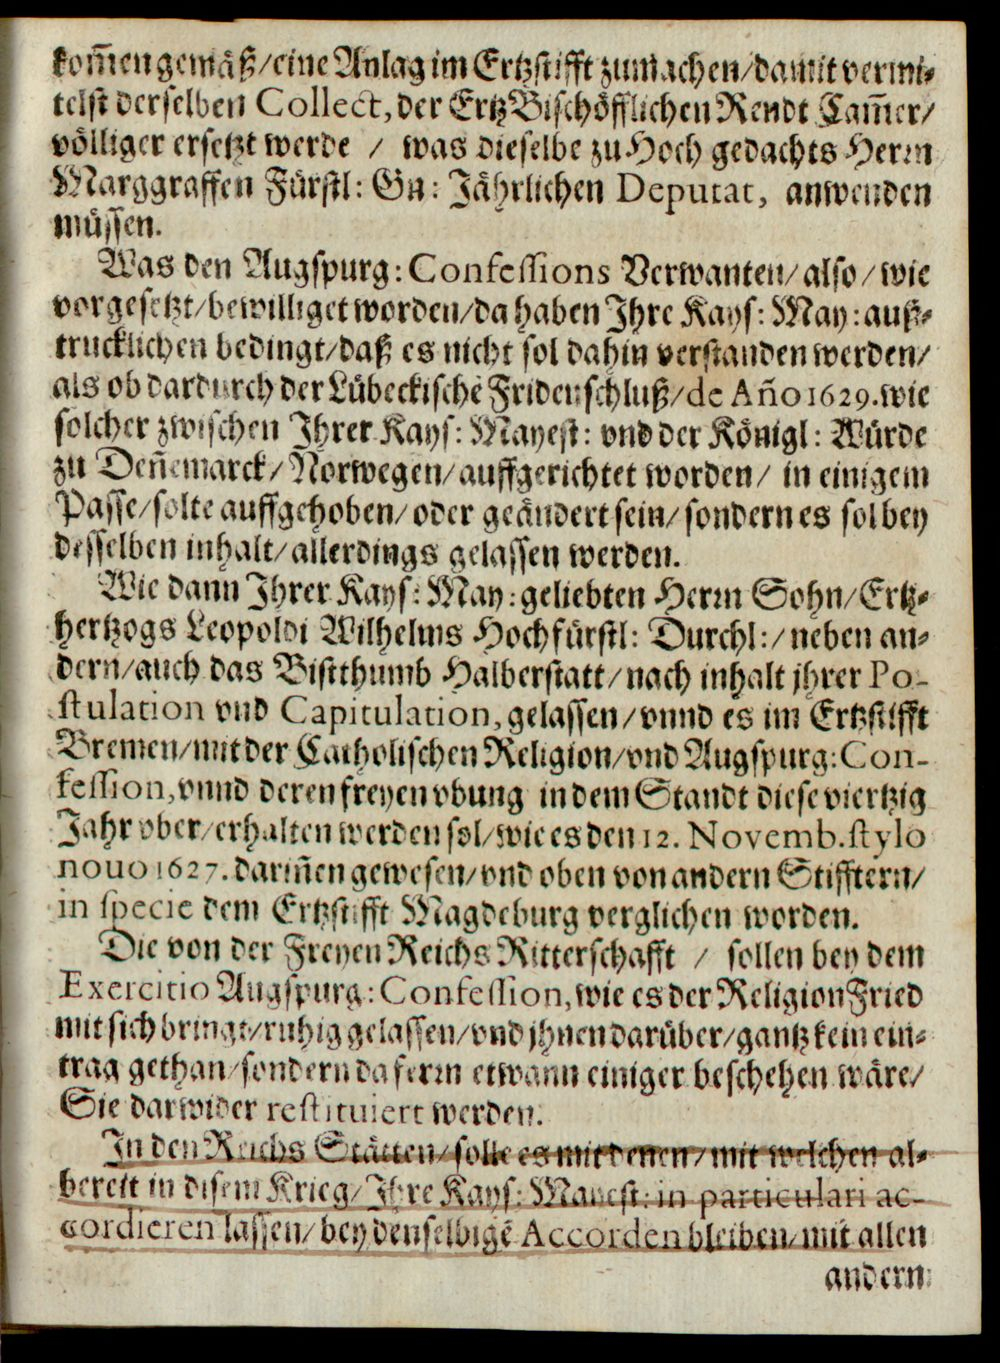 kom̃en gemäß/eine Anlag im Ertzstifft zumachen/damit vermi⸗
telst derselben Collect, der ErtzBischöfflichen Rendt Cam̃er/
völliger ersetzt werde / was dieselbe zu Hoch gedachts Herrn
Marggraffen Fürstl: Gn: Jährlichen Deputat, anwenden
müssen.
Was den Augspurg: Confessions Verwanten/also/wie
vorgesetzt/bewilliget worden/da haben Ihre Kays: May: auß⸗
trucklichen bedingt/daß es nicht sol dahin verstanden werden/
als ob dardurch der Lübeckische Fridenschluß/de Año 1629. wie
solcher zwischen Ihrer Kays: Mayest: vnd der Königl: Würde
zu Deñemarck/Norwegen/auffgerichtet worden/ in einigem
Passe/solte auffgehoben/oder geändert sein/sondern es sol bey
desselben inhalt/allerdings gelassen werden.
Wie dann Ihrer Kays: May: geliebten Herrn Sohn/Ertz⸗
hertzogs Leopoldi Wilhelms Hochfürstl: Durchl:/neben an⸗
dern/auch das Bistthumb Halberstatt/nach inhalt jhrer Po-
stulation vnd Capitulation, gelassen/vnnd es im Ertzstifft
Bremen/mit der Catholischen Religion/vnd Augspurg: Con-
fession, vnnd deren freyen vbung in dem Standt diese viertzig
Jahr vber/erhalten werden sol/wie es den 12. Novemb. stylo
novo 1627. dariñen gewesen/vnd oben von andern Stifftern/
in specie dem Ertzstifft Magdeburg verglichen worden.
Die von der Freyen Reichs Ritterschafft / sollen bey dem
Exercitio Augspurg: Confession, wie es der Religion Fried
mit sich bringt/ruhig gelassen/vnd jhnen darüber/gantz kein ein⸗
trag gethan/sondern da ferrn etwann einiger beschehen wäre/
Sie darwider restituiert werden.
In den Reichs Stätten/solle es mit denen/mit welchen al⸗
bereit in disem Krieg/Ihre Kays: Mayest: in particulari ac-
cordieren lassen/bey denselbigẽ Accorden bleiben/mit allen
andern